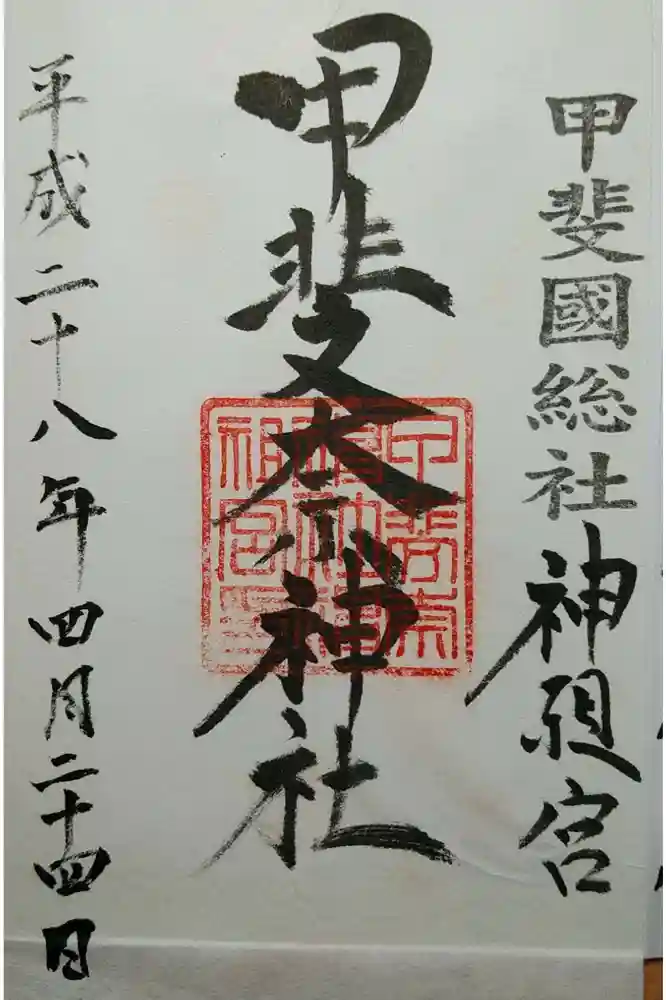 甲斐國総社神祖宮
甲斐奈神社
平成二十八年四月二十四日